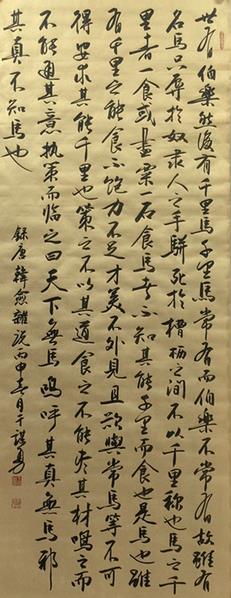 世有伯樂然後有千里馬千里馬常有而伯樂不常有故雖有
名馬只辱於奴隸人之手駢死於槽櫪之間不以千里稱也馬之千
里者一食或盡粟一石食馬者不知其能千里而食也是馬也雖
有千里之能食不飽力不足才美不外見且欲與常馬等不可
得安求其能千里也策之不以其道食之不能盡其材鳴之而
不能通其意執策而臨之曰天下無馬嗚呼其真無馬邪
其真不知馬也
錄唐韓愈雜說丙申春月于